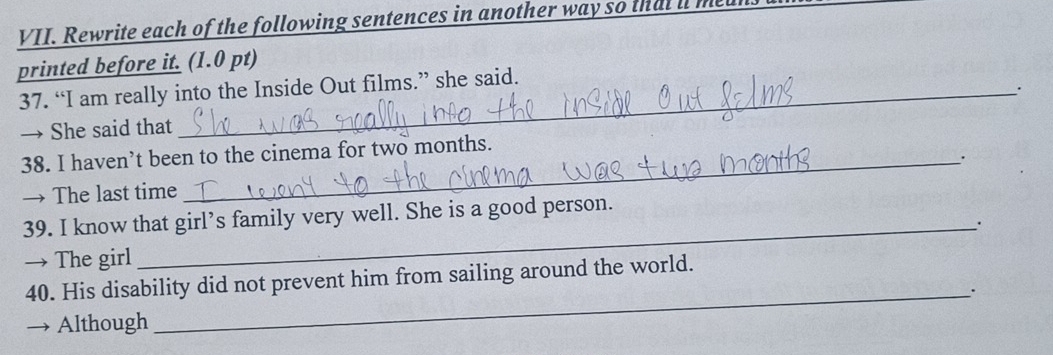 VII. Rewrite each of the following sentences in another way so that it means
printed before it. (1.0 pt)
37. “I am really into the Inside Out films.” she said.
→ She said that She was really into the inside out films.
38. I haven't been to the cinema for two months.
→ The last time I went to the cinema was two months.
39. I know that girl's family very well. She is a good person.
→ The girl .
40. His disability did not prevent him from sailing around the world.
→ Although .